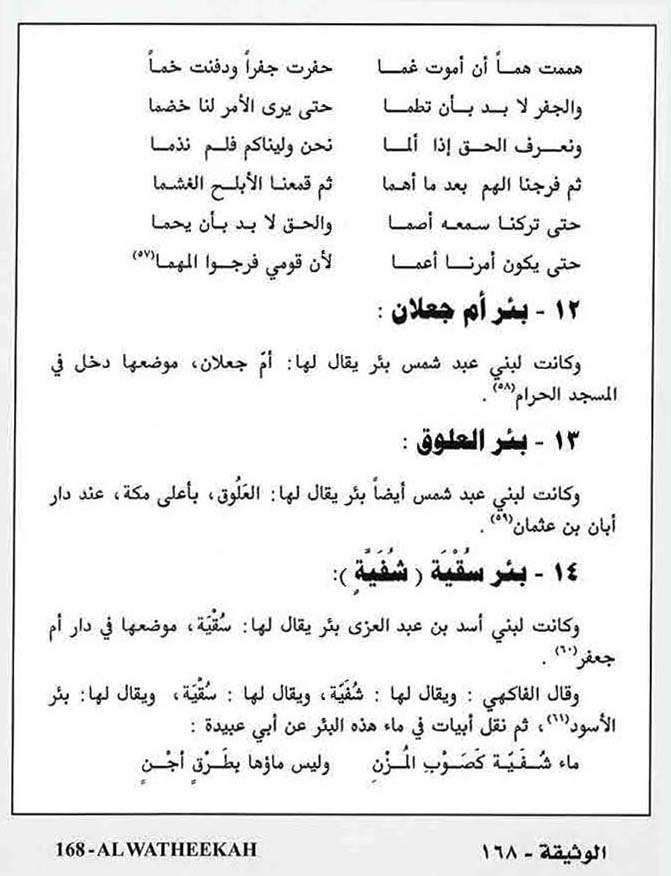 هممت همـاً أن أموت غمـــا حفرت جفراً ودفنت خمـاً
والجفر لا بـد بــأن تطمـــا حتى يرى الأمر لنا خضما
ونعــرف الحــق إذا ألمـــا نحن وليناكم فلــم نذمــا
ثم فرجنا الهم بعد ما أهما ثم قمعنا الأبلــج الغشما
حتى تركنـا سمعـه أصمـا والحـق لا بد بـأن يحمـا
حتى يكون أمرنــا أعمـــا لأن قومي فرجــوا المهمـا(٥٧)
١٢ - بئر أم جعلان :
وكانت لبني عبد شمس بئر يقال لها: أمّ جعلان، موضعها دخل في
المسجد الحرام(٥٨) .
١٣ - بئر العلوق :
وكانت لبني عبد شمس أيضاً بئر يقال لها: العَلُوق، بأعلى مكة، عند دار
أبان بن عثمان(٥٩) .
١٤ - بئر سُقْيَة ( شُفَيَّةٍ ):
وكانت لبني أسد بن عبد العزى بئر يقال لها: سُقْيَة، موضعها في دار أم
جعفر(٦٠) .
وقال الفاكهي : ويقال لها : شُفَيّة، ويقال لها : سُقْيَة، ويقال لها: بئر
الأسود(٦١)، ثم نقل أبيات في ماء هذه البئر عن أبي عبيدة :
ماء شُـفَيّـة كَصَـوْبِ المُـزْنِ وليس ماؤها بِطَـرْقٍ أجْـنٍ
168-ALWATHEEKAH الوثيقة - ١٦٨